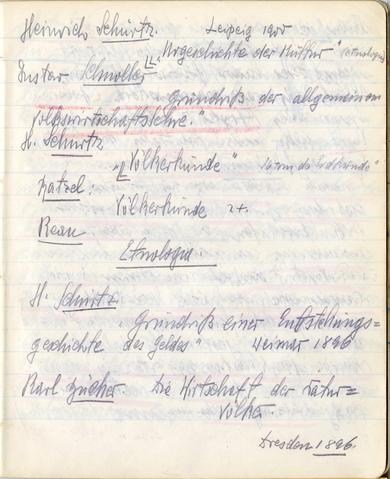 Heinrich Schurtz. Leipzig 1900
"Urgeschichte der Kultur"
Gustav Schmoller
Grundriß der allgemeinen
Volkswirtschaftslehre."
H. Schurtz
"Völkerkunde"
Ratzel:
Völkerkunde 2 t.
Reau
Etnologia
H. Schurtz
"Grundriß einer Entstehungs=
geschichte des Geldes" Weimar 1896
Karl Bücher. Die Wirtschaft der Natur=
völker.
Dresden 1896.